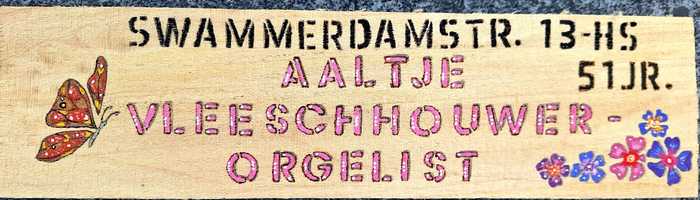 SWAMMERDAMSTR. 13-HS
AALTJE 51JR.
VLEESCHHOUWER-
ORGELIST